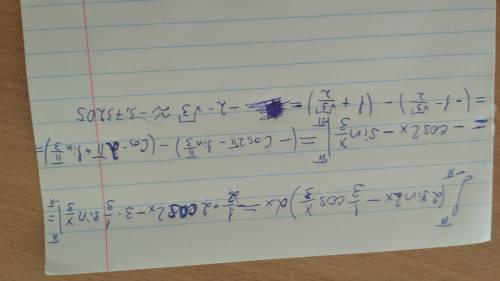 ∫_{-π}^{π} (2 sin2x − 1/3 cos x/3) dx = −1/2 · 2 cos2x − 3 · 1/3 sin x/3 |_{-π}^{π} =
= − cos2x − sin x/3 |_{-π}^{π} = (− cos2π − sin π/3) − (cos 2π + sin π/3) =
= (−1 − √3/2) − (1 + √3/2) = −2 − √3 ≈ −3,73205